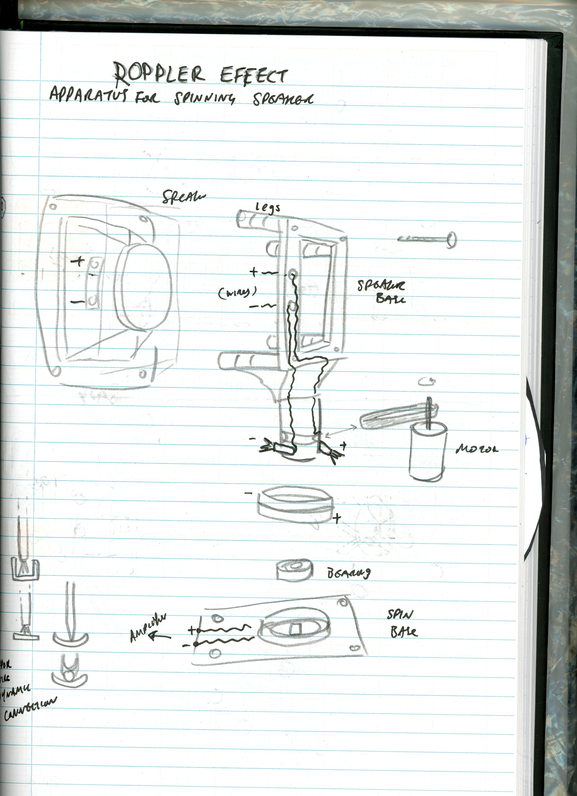 DOPPLER EFFECT
APPARATUS FOR SPINNING SPEAKER
SPEAK
Legs
+
-
+
(WIRES)
-
SPEAKER
BASE
MOTOR
-
+
-
+
BEARING
SPIN
BASE
+
-
CONNECTION